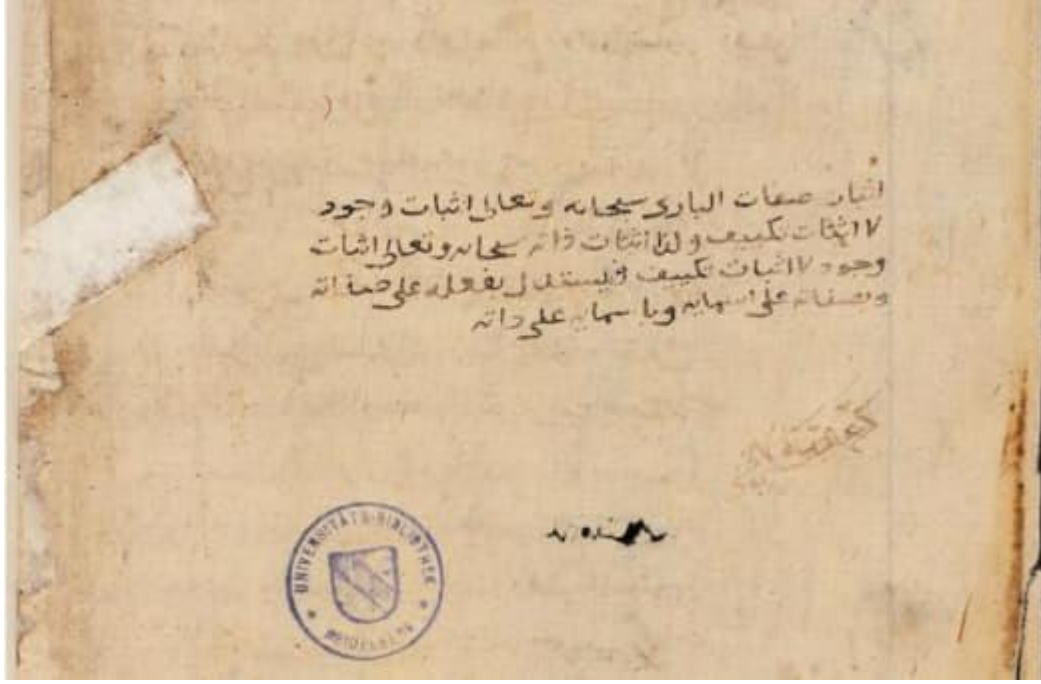 اثبات صفات الباري سبحانه وتعالى اثبات وجود
لا اثبات تكييف ولذا اثبات ذاته سبحانه وتعالى اثبات
وجود لا اثبات تكييف فيستدل بفعله على صفاته
وبصفاته على اسمايه وباسمايه على ذاته
UNIVERSITÄTS-BIBLIOTHEK
HEIDELBERG